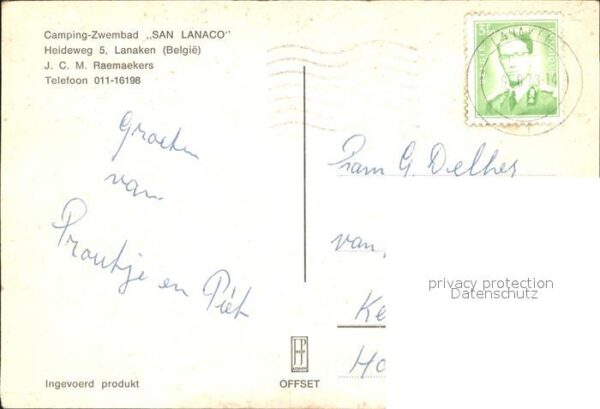 Camping-Zwembad „SAN LANACO"
Heideweg 5, Lanaken (België)
J. C. M. Raemaekers
Telefoon 011-16198
Groeten
van
Proutje en Piet
Fram G Delhes
van
Ke
Ho
privacy protection
Datenschutz
Ingevoerd produkt
OFFSET